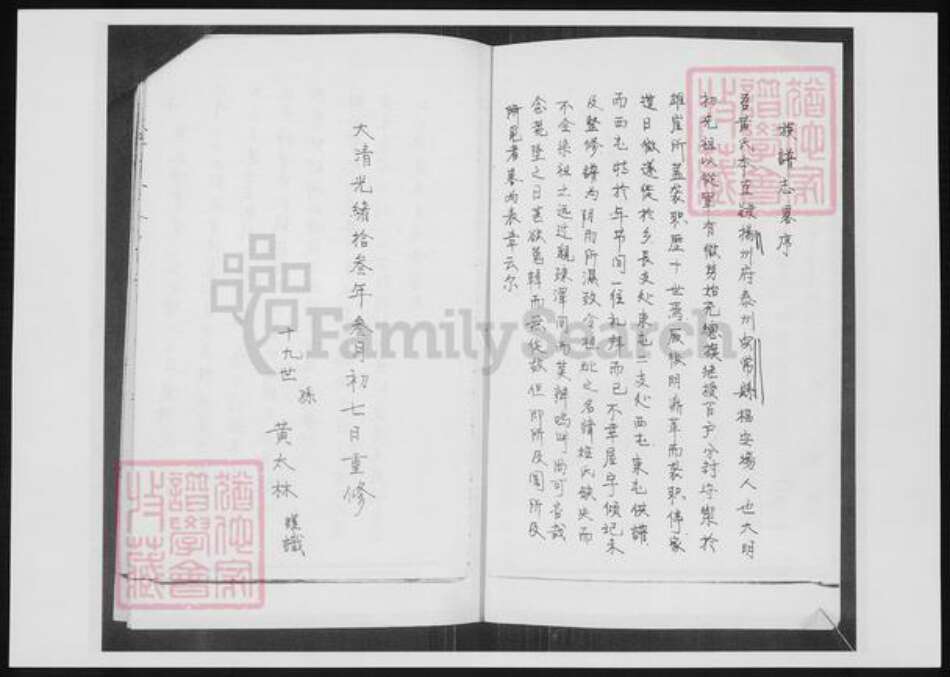 族譜志墓序
吾黃氏本直隸揚州府泰州安常縣楊安場人也大明
初先祖以從軍有微勞始充總旗繼授百戶分討
雄崖所蓋襲職歷十世焉厥後明鼎革而襲職停家
道日微遂徙於鄉長支處東屯二支處西屯東屯供譜
而西屯特於年節間一往禮拜而已不幸屋宇傾圮未
及整修譜為陰雨所濕致令祖之名諱姓氏缺失而
不全梁祖之遠近親疎渾同而莫辨嗚呼尚可言哉
念墜之日甚欲而無從故但即所及聞所及
所見者墓為表章云爾
大清光緒拾叁年叁月初七日重修
十九世孫黃太林謹識
猶他家譜學會收藏
猶他家譜學會收藏
FamilySearch